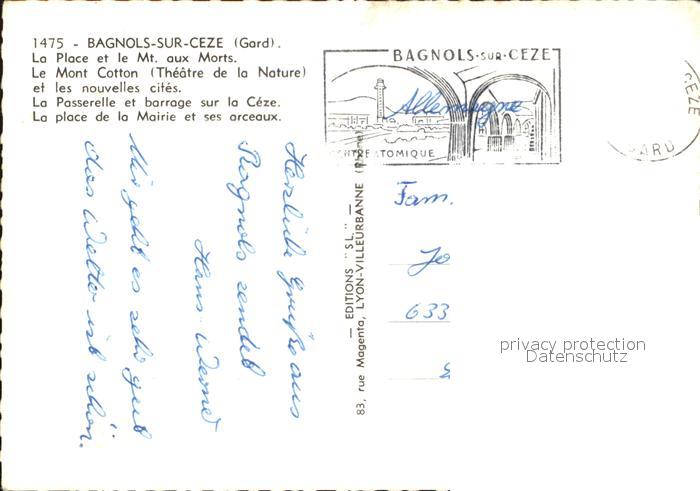 1475 - BAGNOLS-SUR-CEZE (Gard).
La Place et le Mt. aux Morts.
Le Mont Cotton (Théâtre de la Nature)
et les nouvelles cités.
La Passerelle et barrage sur la Céze.
La place de la Mairie et ses arceaux.
BAGNOLS-SUR-CEZE
ATOMIQUE
CEZE
GARD
Allemagne
Herzliche Grüße aus
Bagnols sendet
Hans Werner
Mir geht es sehr gut
das Wetter ist schön.
— EDITIONS "S.L." —
83, rue Magenta, LYON-VILLEURBANNE (Rhône)
Fam.
Jo
633
privacy protection
Datenschutz